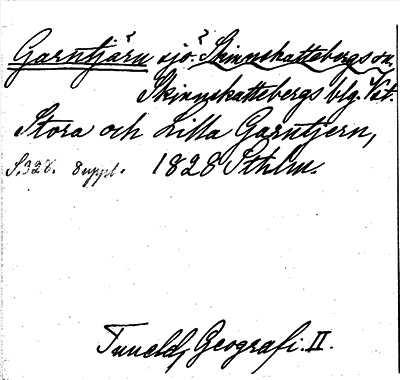 Garntjärn sjö. ? Skinnskattebergs sn.
Skinnskattebergs blg. Vst.
Stora och Lilla Garntjern,
S. 328. 8 uppl. 1828 Sthlm.
Tuneld, Geografi. II.